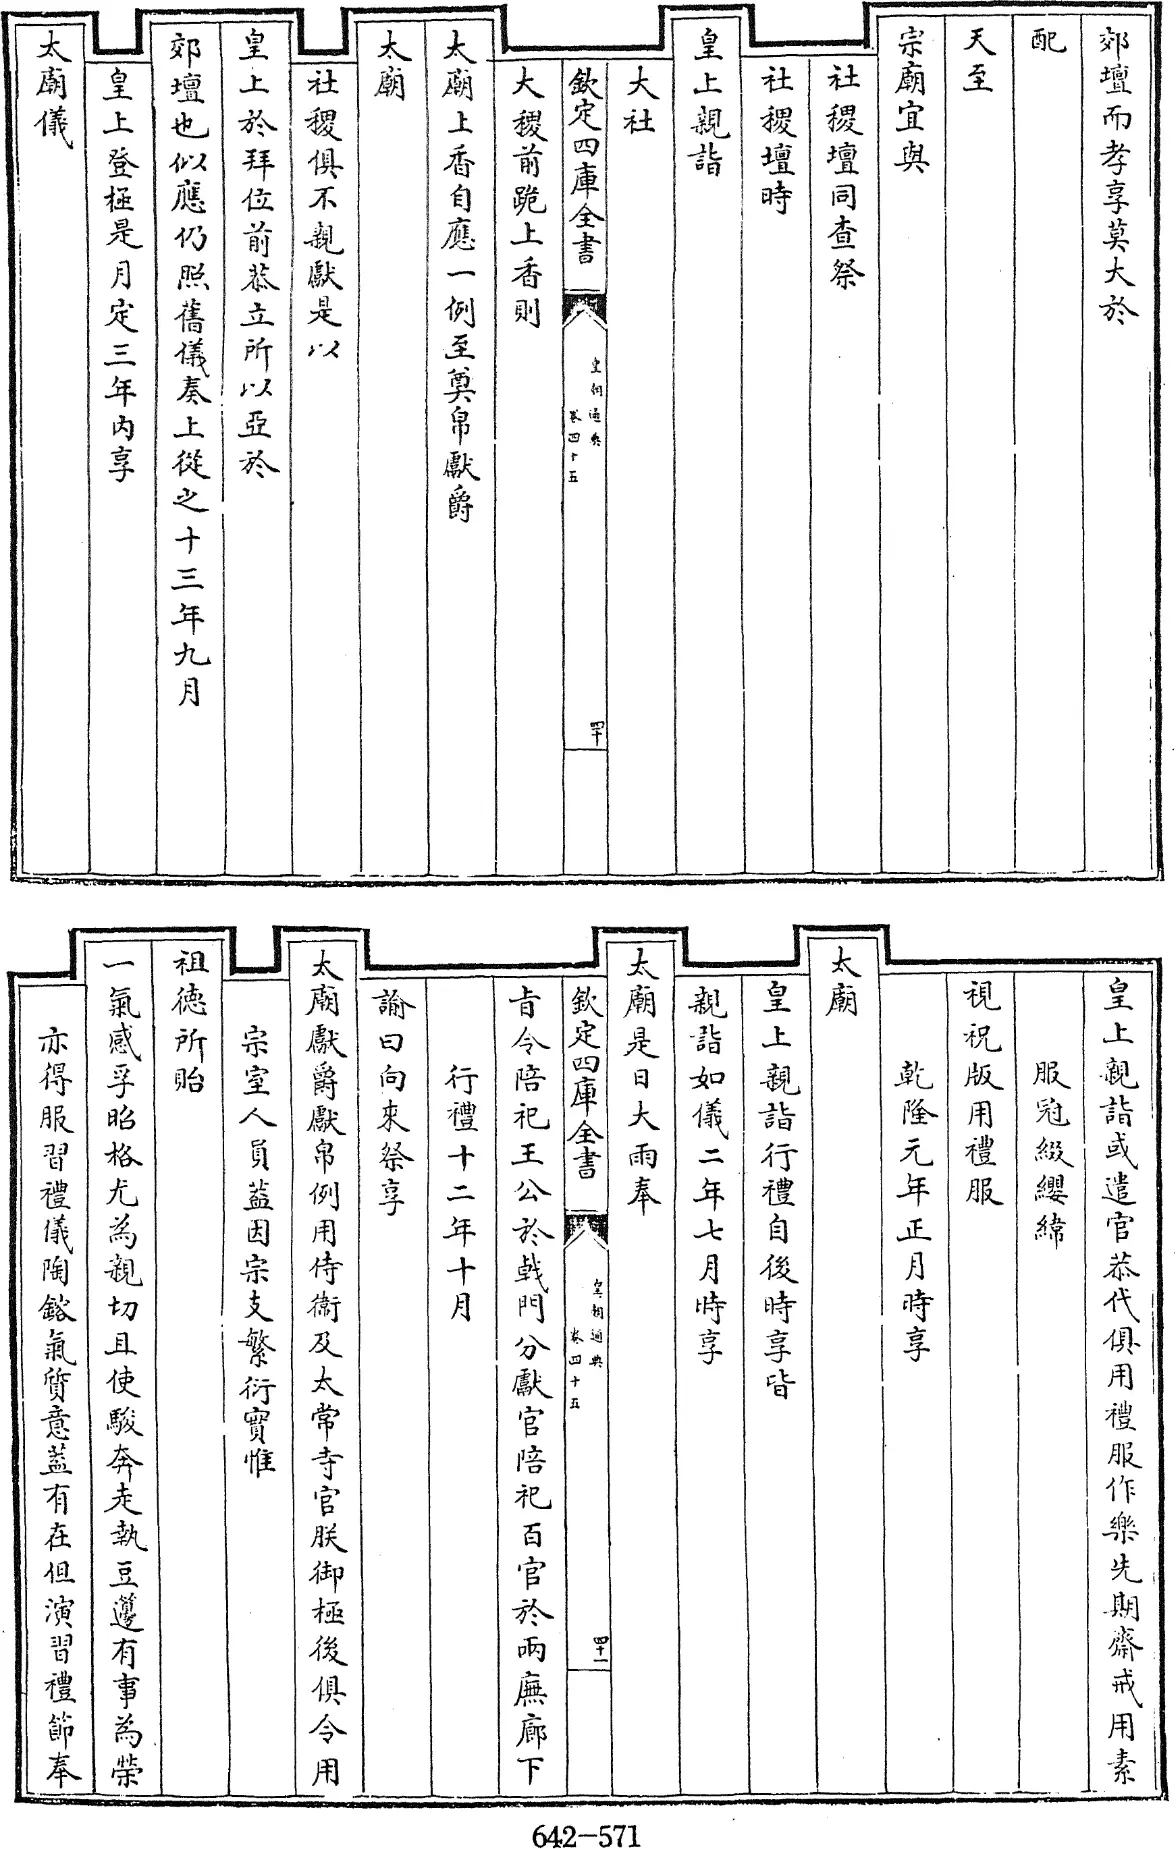 郊壇而孝享莫大於
配
天至
宗廟宜與
社稷壇同查祭
社稷壇時
皇上親詣
大社
欽定四庫全書
皇朝通典
卷四十五
四十
大稷前跪上香則
太廟上香自應一例至奠帛獻爵
太廟
社稷俱不親獻是以
皇上於拜位前恭立所以亞於
郊壇也似應仍照舊儀奏上從之十三年九月
皇上登極是月定三年內享
太廟儀
皇上親詣或遣官恭代俱用禮服作樂先期齋戒用素
服冠綴纓緯
視祝版用禮服
乾隆元年正月時享
太廟
皇上親詣行禮自後時享皆
親詣如儀二年七月時享
太廟是日大雨奉
欽定四庫全書
皇朝通典
卷四十五
四十一
旨令陪祀王公於戟門分獻官陪祀百官於兩廡廊下
行禮十二年十月
諭曰向來祭享
太廟獻爵獻帛例用侍衛及太常寺官朕御極後俱令用
宗室人員蓋因宗支繁衍實惟
祖德所貽
一氣感孚昭格尤為親切且使駿奔走執豆籩有事為榮
亦得服習禮儀陶鎔氣質意蓋有在但演習禮節奉
642-571